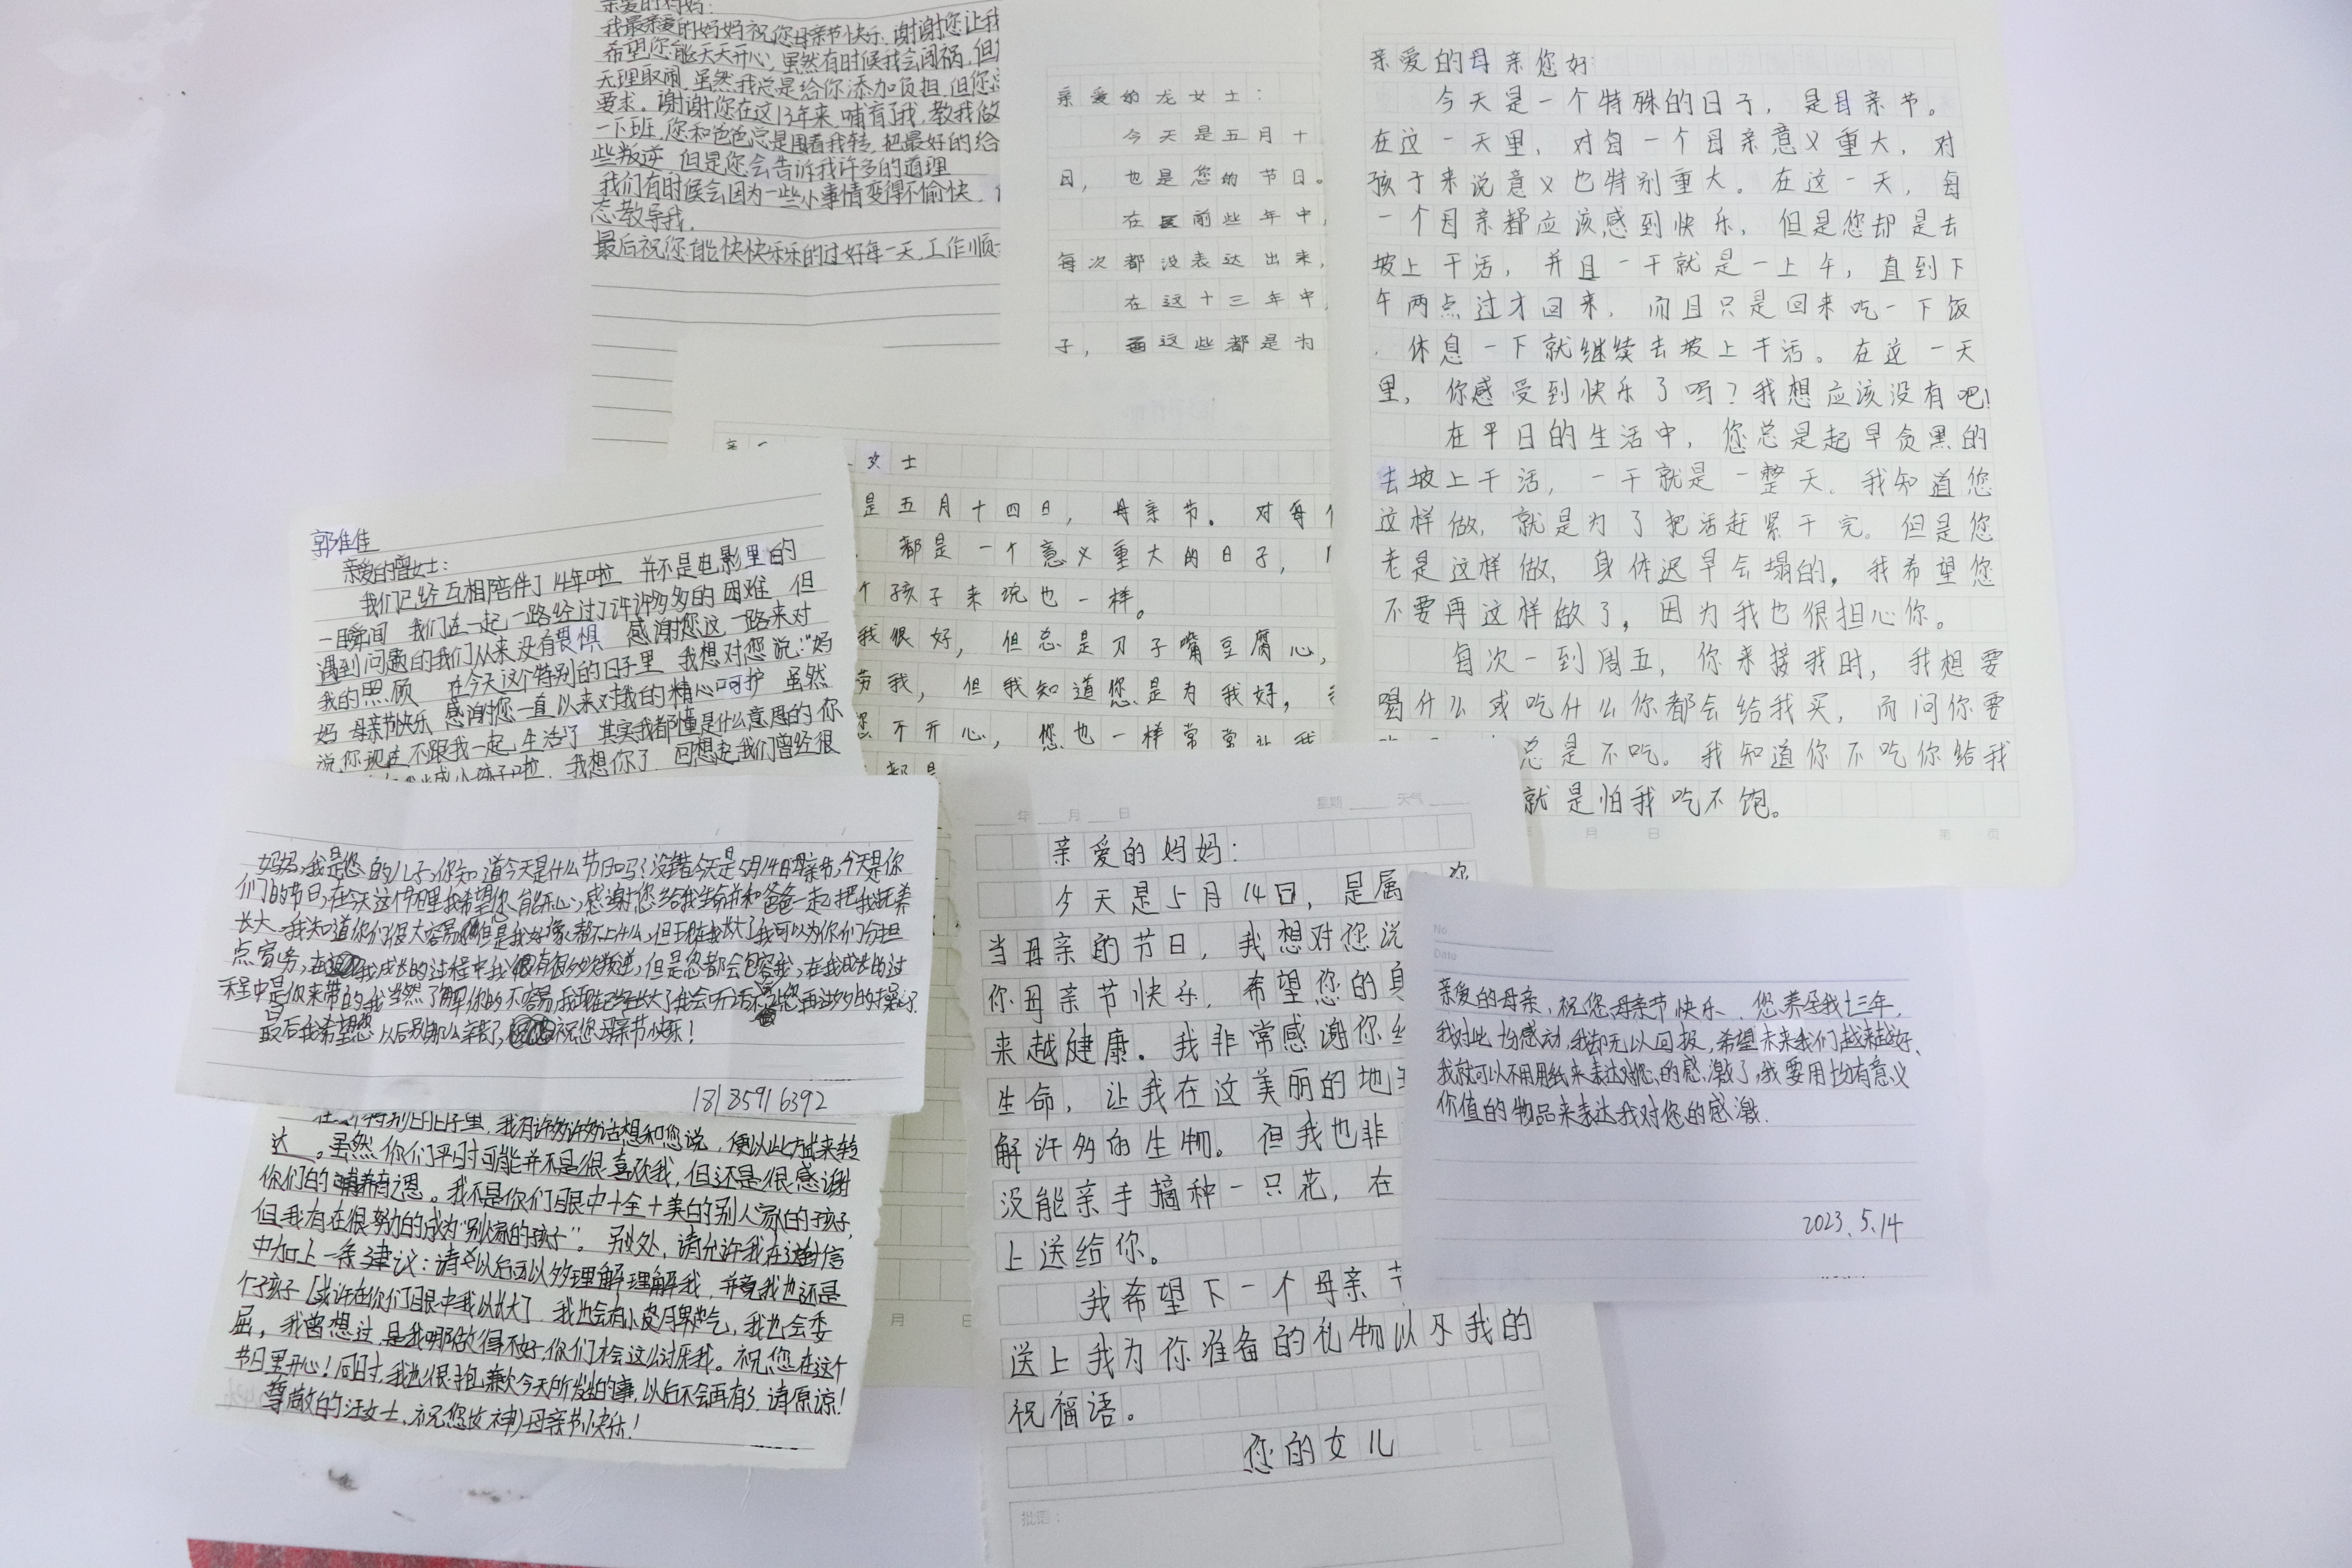 亲爱的妈妈：
我最亲爱的妈妈祝您母亲节快乐.谢谢您让我
希望您能天天开心，虽然有时候我会闯祸，但
无理取闹.虽然我总是给你添加负担.但您
要求。谢谢您在这13年来.哺育了我，教我做
一下班.您和爸爸总是围着我转.把最好的给
些叛逆 但是您会告诉我许多的道理
我们有时候会因为一些小事情变得不偷快.
态教导我.
最后祝您能快快乐乐的过好每一天.工作顺
亲爱的龙女士：
今天是五月十
日，也是您的节日。
在前些年中，
每次都没表达出来，
在这十三年中，
子，这些都是为
亲爱的母亲您好：
今天是一个特殊的日子，是母亲节。
在这一天里，对每一个母亲意义重大，对
孩子来说意义也特别重大。在这一天，每
一个母亲都应该感到快乐，但是您却是去
坡上干活，并且一干就是一上午，直到下
午两点过才回来，而且只是回来吃一下饭
，休息一下就继续去坡上干活。在这一天
里，你感受到快乐了吗？我想应该没有吧！
在平日的生活中，您总是起早贪黑的
去坡上干活，一干就是一整天。我知道您
这样做，就是为了把活赶紧干完。但是您
老是这样做，身体迟早会塌的，我希望您
不要再这样做了，因为我也很担心你。
每次一到周五，你来接我时，我想要
喝什么或吃什么你都会给我买，而问你要
总是不吃。我知道你不吃你给我
就是怕我吃不饱。
月 日 第 页
女士
是五月十四日，母亲节。对每
都是一个意义重大的日子，
个孩子来说也一样。
我很好，但总是刀子嘴豆腐心，
劳我，但我知道您是为我好，
您不开心，您也一样常常让我
都是
郭佳佳
亲爱的曾女士：
我们已经互相陪伴了14年啦 并不是电影里的
一瞬间 我们在一起一路经过了许许多多的困难 但
遇到问题的我们从来没有畏惧 感谢您这一路来对
我的照顾 在今天这个特别的日子里 我想对您说："妈
妈 母亲节快乐 感谢您一直以来对我的精心呵护 虽然
说你现在不跟我一起生活了 其实我都懂是什么意思的 你
小孩子啦.我想你了 回想起我们曾经很
妈妈，我是您的儿子，你知道今天是什么节日吗？没错今天是5月14日母亲节，今天是你
们的节日，在今天这个节日里我希望你能开心，感谢您给我生命并和爸爸一起把我抚养
长大，我知道你们很大容易但是我好像帮不上什么，但现在我长大了我可以为你们分担
点家务，在我成长的过程中我有很多次叛逆，但是您都会包容我，在我成长的过
程中是你来带的我当然了解你的不容易，我现在已经长大了我会听话不让您再过多的操心.
最后我希望您以后别那么辛苦了，祝您母亲节快乐！
18185916392
在这个特别的日子里，我有许多许多话想和您说，便以此方式来转
达。虽然你们平时可能并不是很喜欢我，但还是很感谢
你们的哺养育之恩。我不是你们眼中十全十美的"别人家"的孩子，
但我有在很努力的成为"别人家的孩子"。别处，请允许我在这封信
中加上一条建议：请以后可以多理解理解我，并竟我也还是
个孩子[或许在你们眼中我以长大了.我也会有小皮月卑气，我也会委
屈，我曾想过，是我哪做得不好，你们才会这么讨乐我。祝您在这个
节日里开心！同时，我也很抱兼欠今天所发生的事，以后不会再有了.请原谅！
尊敬的汪女士，祝您(女神)母亲节快乐！
月 日
年 月 日 星期 天气
亲爱的妈妈：
今天是5月14日，是属 你
当母亲的节日，我想对您说
你母亲节快乐，希望您的身
来越健康。我非常感谢你给
生命，让我在这美丽的地
解许多的生物。但我也非
没能亲手摘种一只花，在
上送给你。
我希望下一个母亲节
送上我为你准备的礼物以及我的
祝福语。
您的女儿
批语：
No
Date
亲爱的母亲，祝您母亲节快乐. 您养孕我十三年，
我对此十分感动，我却无以回报，希望未来我们越来越好、
我就可以不用用纸来表达对您的感激了，我要用十分有意义
价值的物品来表达我对您的感激.
2023.5.14